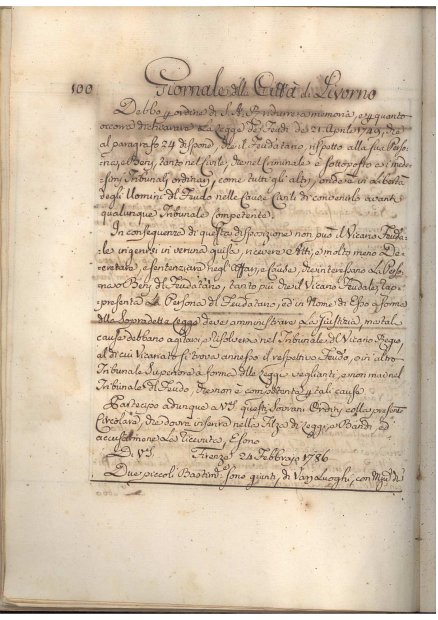 100 Giornale della Città di Livorno
Debbo p ordine di S. A. R. ridurre a memoria, e p quanto
occorra dichiarare la Legge de' Feudi de' 21. Aprile 1749, che
al paragrafo 24 dispone, che il Feudatario, rispetto alla sua Perso-
na, e Beni, tanto nel Civile, che nel Criminale è sottoposto ai mede-
simi Tribunali ordinari, come tutti gli altri, ed era in libertà
degli Uomini del Feudo nelle Cause Civili di convenirlo avanti
qualunque Tribunale competente.
In conseguenza di questa disposizione non può il Vicario Feuda-
le ingerirsi in veruna guisa, ricevere Atti, e molto meno De-
cretare, e sentenziare negl'Affari, e Cause, che interessano la Perso-
na, o Beni del Feudatario, tanto più che il Vicario Feudale rap-
presenta la Persona del Feudatario, ed in Nome di Esso a forma
della Sopradetta Legge deve amministrare la Giustizia, ma tali
cause debbano agitarsi, e risolversi nel Tribunale del Vicario Regio,
al di cui Vicariato si trova annesso il respettivo Feudo, o in altro
Tribunale Superiore a forma delle Leggi veglianti, e non mai nel
Tribunale del Feudo, che non è competente p tali cause
Partecipo adunque a VS. questi Sovrani Ordini, colla presente
Circolare, che dovrà inserire nella Filza di Leggi, e Bandi ed
accusarmene la ricevuta, E sono
D. VS. Firenze 24 Febbrajo 1786
Due piccoli Bastimti sono giunti, di Vari Luoghi, con